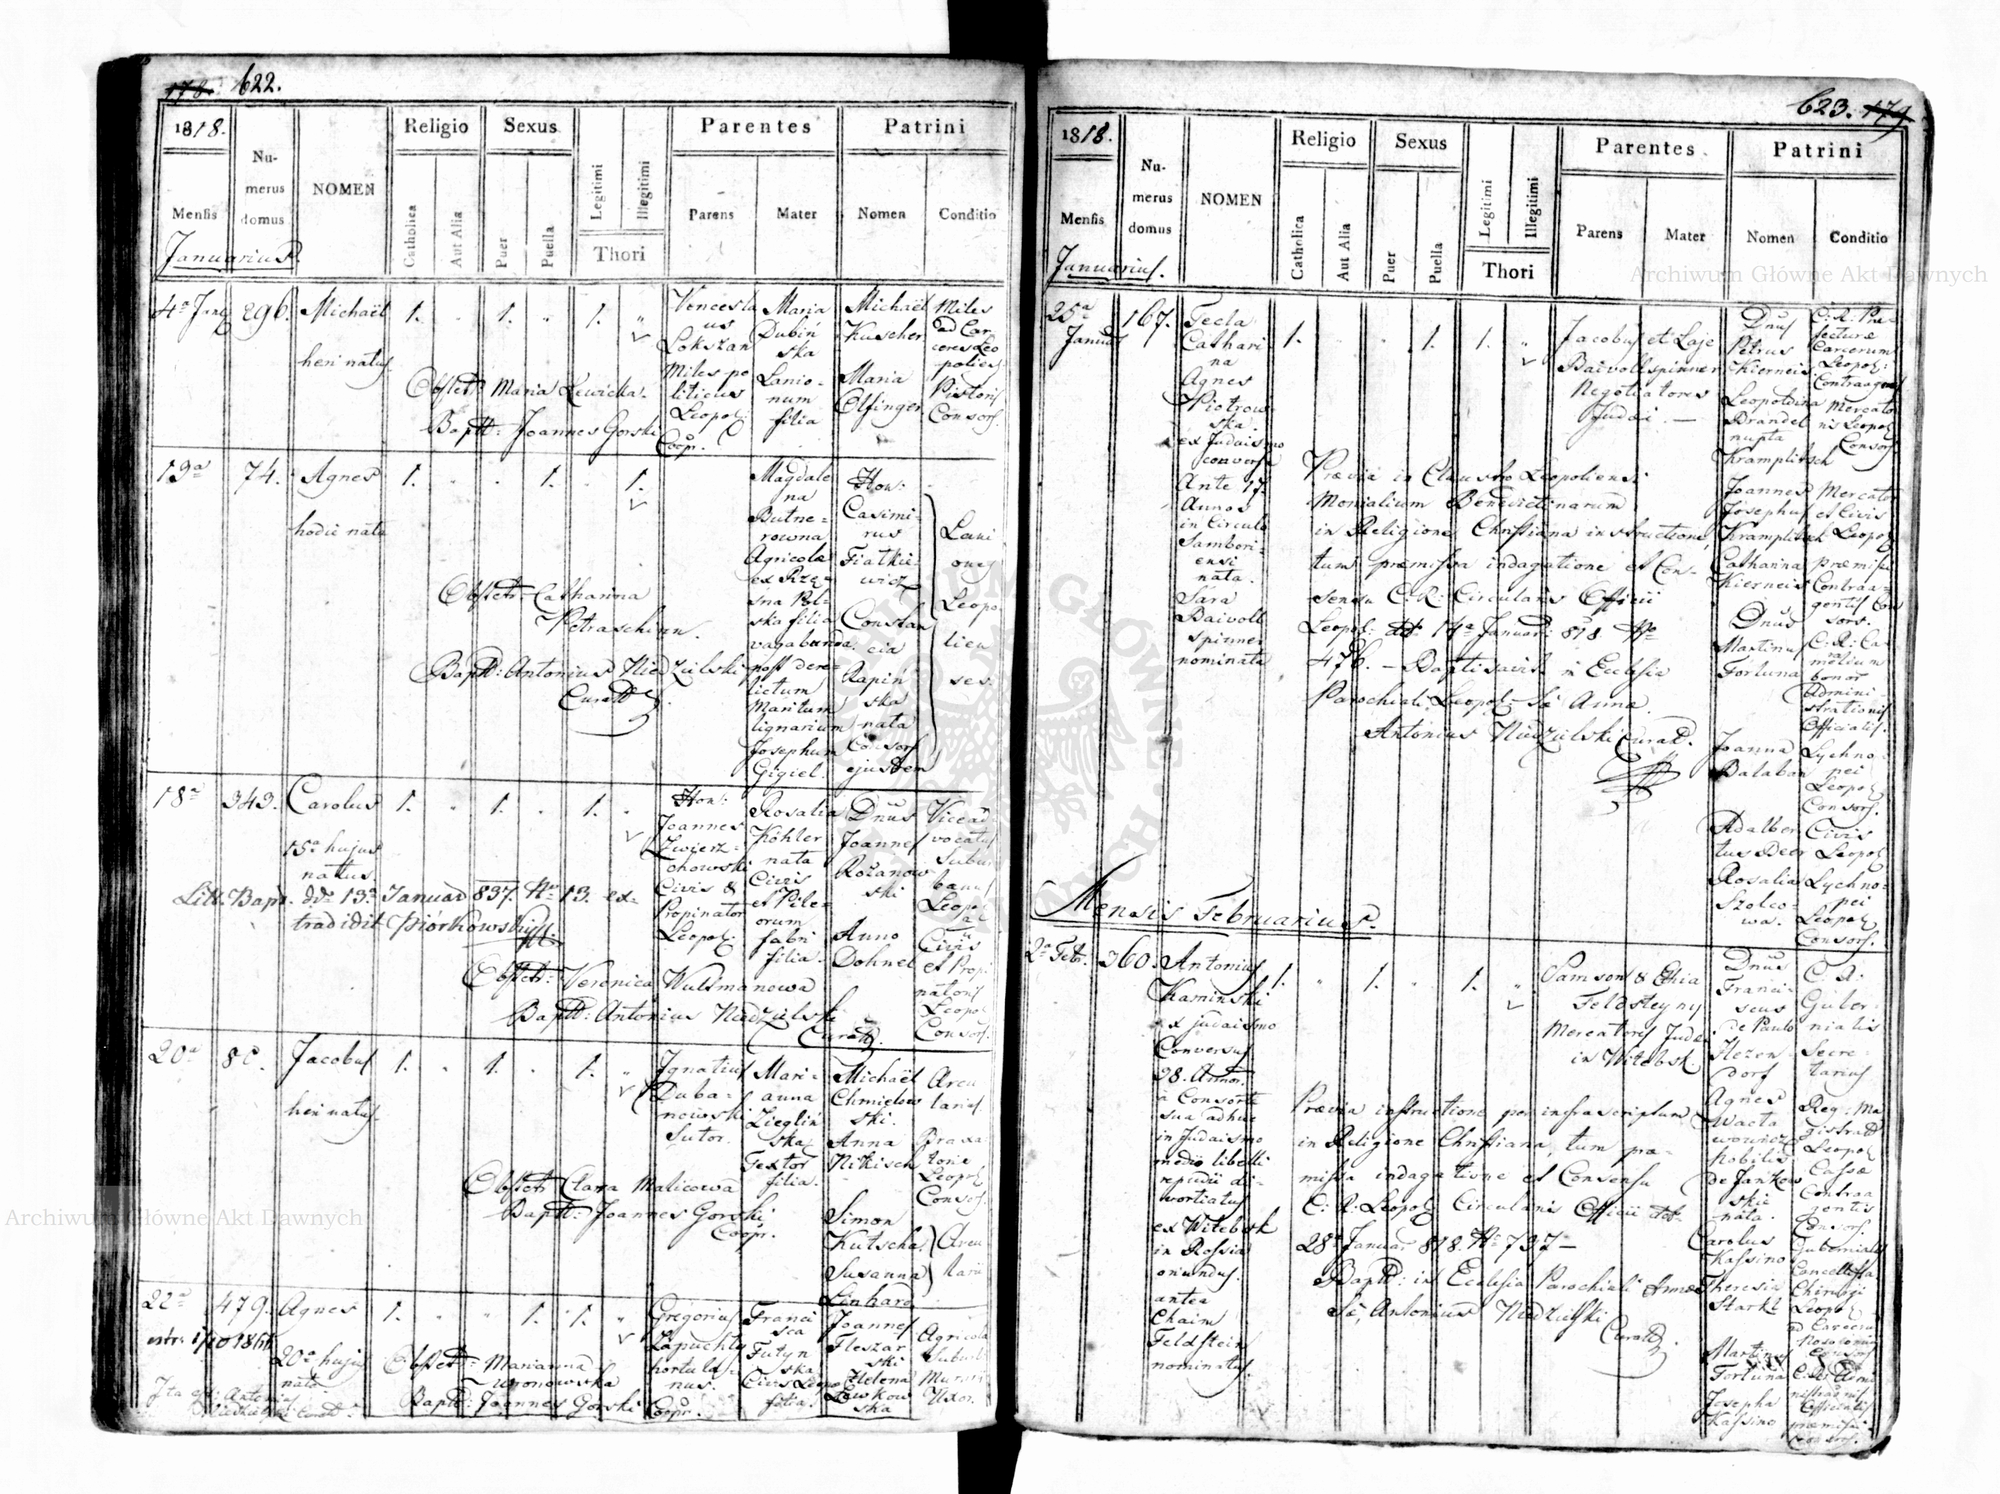 178. 622.
1818.
Mensis
Januarius
Numerus domus
NOMEN
Religio
Catholica
Aut Alia
Sexus
Puer
Puella
Legitimi
Illegitimi
Thori
Parentes
Parens
Mater
Patrini
Nomen
Conditio
4a Janu
296.
Michaël
heri natus
1.
1.
1.
Venceslaus
Lokszan
Miles politicus
Leopol:
Maria
Dubińska
Lanionum
filia
Michaël
Kuscher
Maria
Elfinger
Miles
ad Carceres Leopolien
Pistoris
Consors.
Obstetr: Maria Lewicka.
Baptt: Joannes Gorski
Coopr.
13a
74.
Agnes
hodie nata
1.
1.
1.
Magdalena
Butnerowna
Agricolæ
filia
vagabunda
post derelictum
Maritum
lignarium
Josephum
Gigiel.
Hon:
Casimirus
Fiatkiewicz
Constancia
Rapińska
nata
Consors
ejusdem
Laniones
Leopolienses.
Obstetr: Catharina
Petraschinn.
Baptt: Antonius Niedzielski
Curatt
18a
343.
Carolus
15a hujus
natus.
1.
1.
1.
Hon:
Joannes
Zwierzchowski
Civis &
Propinator
Leopol:
Rosalia
Köhler
nata
Civis
et Pileorum
fabri
filia.
Dnus
Joannes
Rożanowski
Anna
Dohnel
Viceadvocatus
Suburbanus
Leopol
Civis
et Propinatoris
Leopol
Consors.
Litt. Bapt. ddo 13a Januar 837. No 13. extradidit Piórkowski
Obstetr: Veronica Wulsmanowa
Baptt: Antonius Niedzielski
Curatt.
20a
80.
Jacobus
heri natus.
1.
1.
1.
Ignatius
Dubanowski
Sutor.
Marianna
Zieglińska
Textor
filia.
Michaël
Chmielowski.
Anna
Nikisch
Simon
Kutscha
Susanna
Linhard
Leopol
Consors.
Obstetr: Clara Malicowa
Baptt: Joannes Gorski
Coopr.
22a
479.
Agnes
20a hujus
nata
1.
1.
1.
Gregorius
Lapuchty
hortulanus.
Francisca
Futyńska
Civis Leopol
filia.
Joannes
Fleszarski
Helena
Lewkowska
Agricola
Suburb
Uxor.
Obstetr: Marianna
Baptt: Joannes Gorski Coopr.
623. 179
1818.
Mensis
Januarius.
Numerus domus
NOMEN
Religio
Catholica
Aut Alia
Sexus
Puer
Puella
Legitimi
Illegitimi
Thori
Parentes
Parens
Mater
Patrini
Nomen
Conditio
25a
Januar
167.
Tecla
Catharina
Agnes
Piotrowska.
ex Judaismo
conversa
Ante 17.
Annos
in Circulo
Samboriensi
nata.
Sara
Baivollspinner
nominata
1.
1.
1.
Jacobus et Laje
Baivollspinner
Negotiatores
Judæi.
Dnus
Petrus
Kierneis
Leopoldina
Brandel
nupta
Kramplitsch
Joannes
Josephus
Kramplitsch
Catharina
Kierneis
Dnus
Martinus
Fortuna
Joanna
Balaban
Adalbertus Beer
Rosalia
Szolcowa.
C: R: Præfecturæ
Carcerum
Leopol:
Contraagens
Mercatoris Leopol
Consors.
Mercator
et Civis
Leopol
præmissi
Contraagentis Consors.
C: R: Cameralium
bonor
Administrationis
Officialis.
Lychnopei
Leopol
Consors.
Civis
Leopol
Lychnopei
Leopol
Consors.
Prævia in Claustro Leopoliensi
Monialium Benedictinarum
in Religione Christiana instructione,
tum præmissa indagatione et Consensu C: R: Circularis Officii
Leopol: ddo 14a Januar: 818 No
476. – Baptisavit in Ecclesia
Parochiali Leopol: Sæ Annæ
Antonius Niedzielski Curatt.
Mensis Februarius.
2a Febr.
360.
Antonius
Kaminski
ex Judaismo
Conversus
28. Annor.
a Consorte
sua adhuc
in Judaismo
medio libelli
repudii divortiatus
ex Witebsk
in Rossia
oriundus.
antea
Chaim
Feldstein
nominatus.
1.
1.
1.
Samson & Chia
Feldsteyny
Mercatores Judæi
in Witebsk
Dnus
Franciscus
de Paulo
Hezendorf
Agnes
Nobilis
de Jankowskie
nata.
Carolus
Kassino
Theresia
Starkl
Martinus
Fortuna
Josepha
Kassino
C. R:
Gubernialis
Secretarius
Reg: Magistratt
Leopol
Cassæ
Contraagentis
Consors.
Gubernialis
Cancellista
Chirurgi
Leopol
Officialis
præmissi
Consors.
Prævia instructione per infrascriptum
in Religione Christiana, tum præmissa indagatione et Consensu
C: R: Leopol Circularis Officii ddo
28a Januar 818. No 737 –
Baptt: in Ecclesia Parochiali Annæ
Sæ, Antonius Niedzielski
Curatt.
Archiwum Główne Akt Dawnych
Archiwum Główne Akt Dawnych